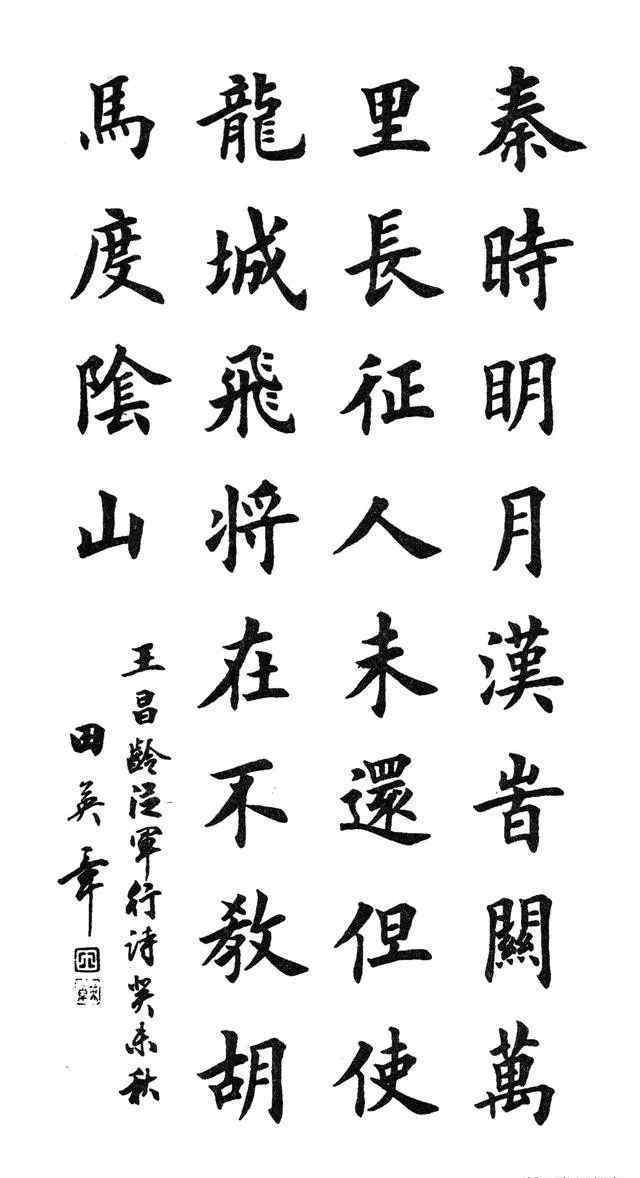 秦時明月漢旹關萬
里長征人未還但使
龍城飛将在不教胡
馬度陰山
王昌齡從軍行詩癸未秋
田英章